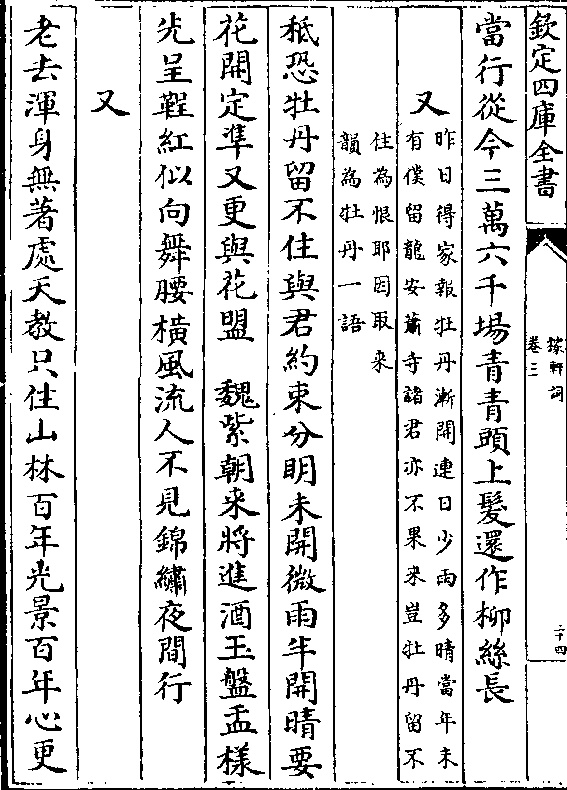 欽定四庫全書
稼軒詞
卷三
二十四
當行從今三萬六千場青青頭上髮還作柳絲長
又
昨日得家報牡丹漸開連日少雨多晴當年未
有僕留龍安蕭寺諸君亦不果來豈牡丹留不
住為恨耶因取來
韻為牡丹一語
秪恐牡丹留不住與君約束分明未開微雨半開晴要
花開定準又更與花盟　魏紫朝來將進酒玉盤盂樣
先呈鞓紅似向舞腰橫風流人不見錦繡夜間行
又
老去渾身無著處天教只住山林百年光景百年心更